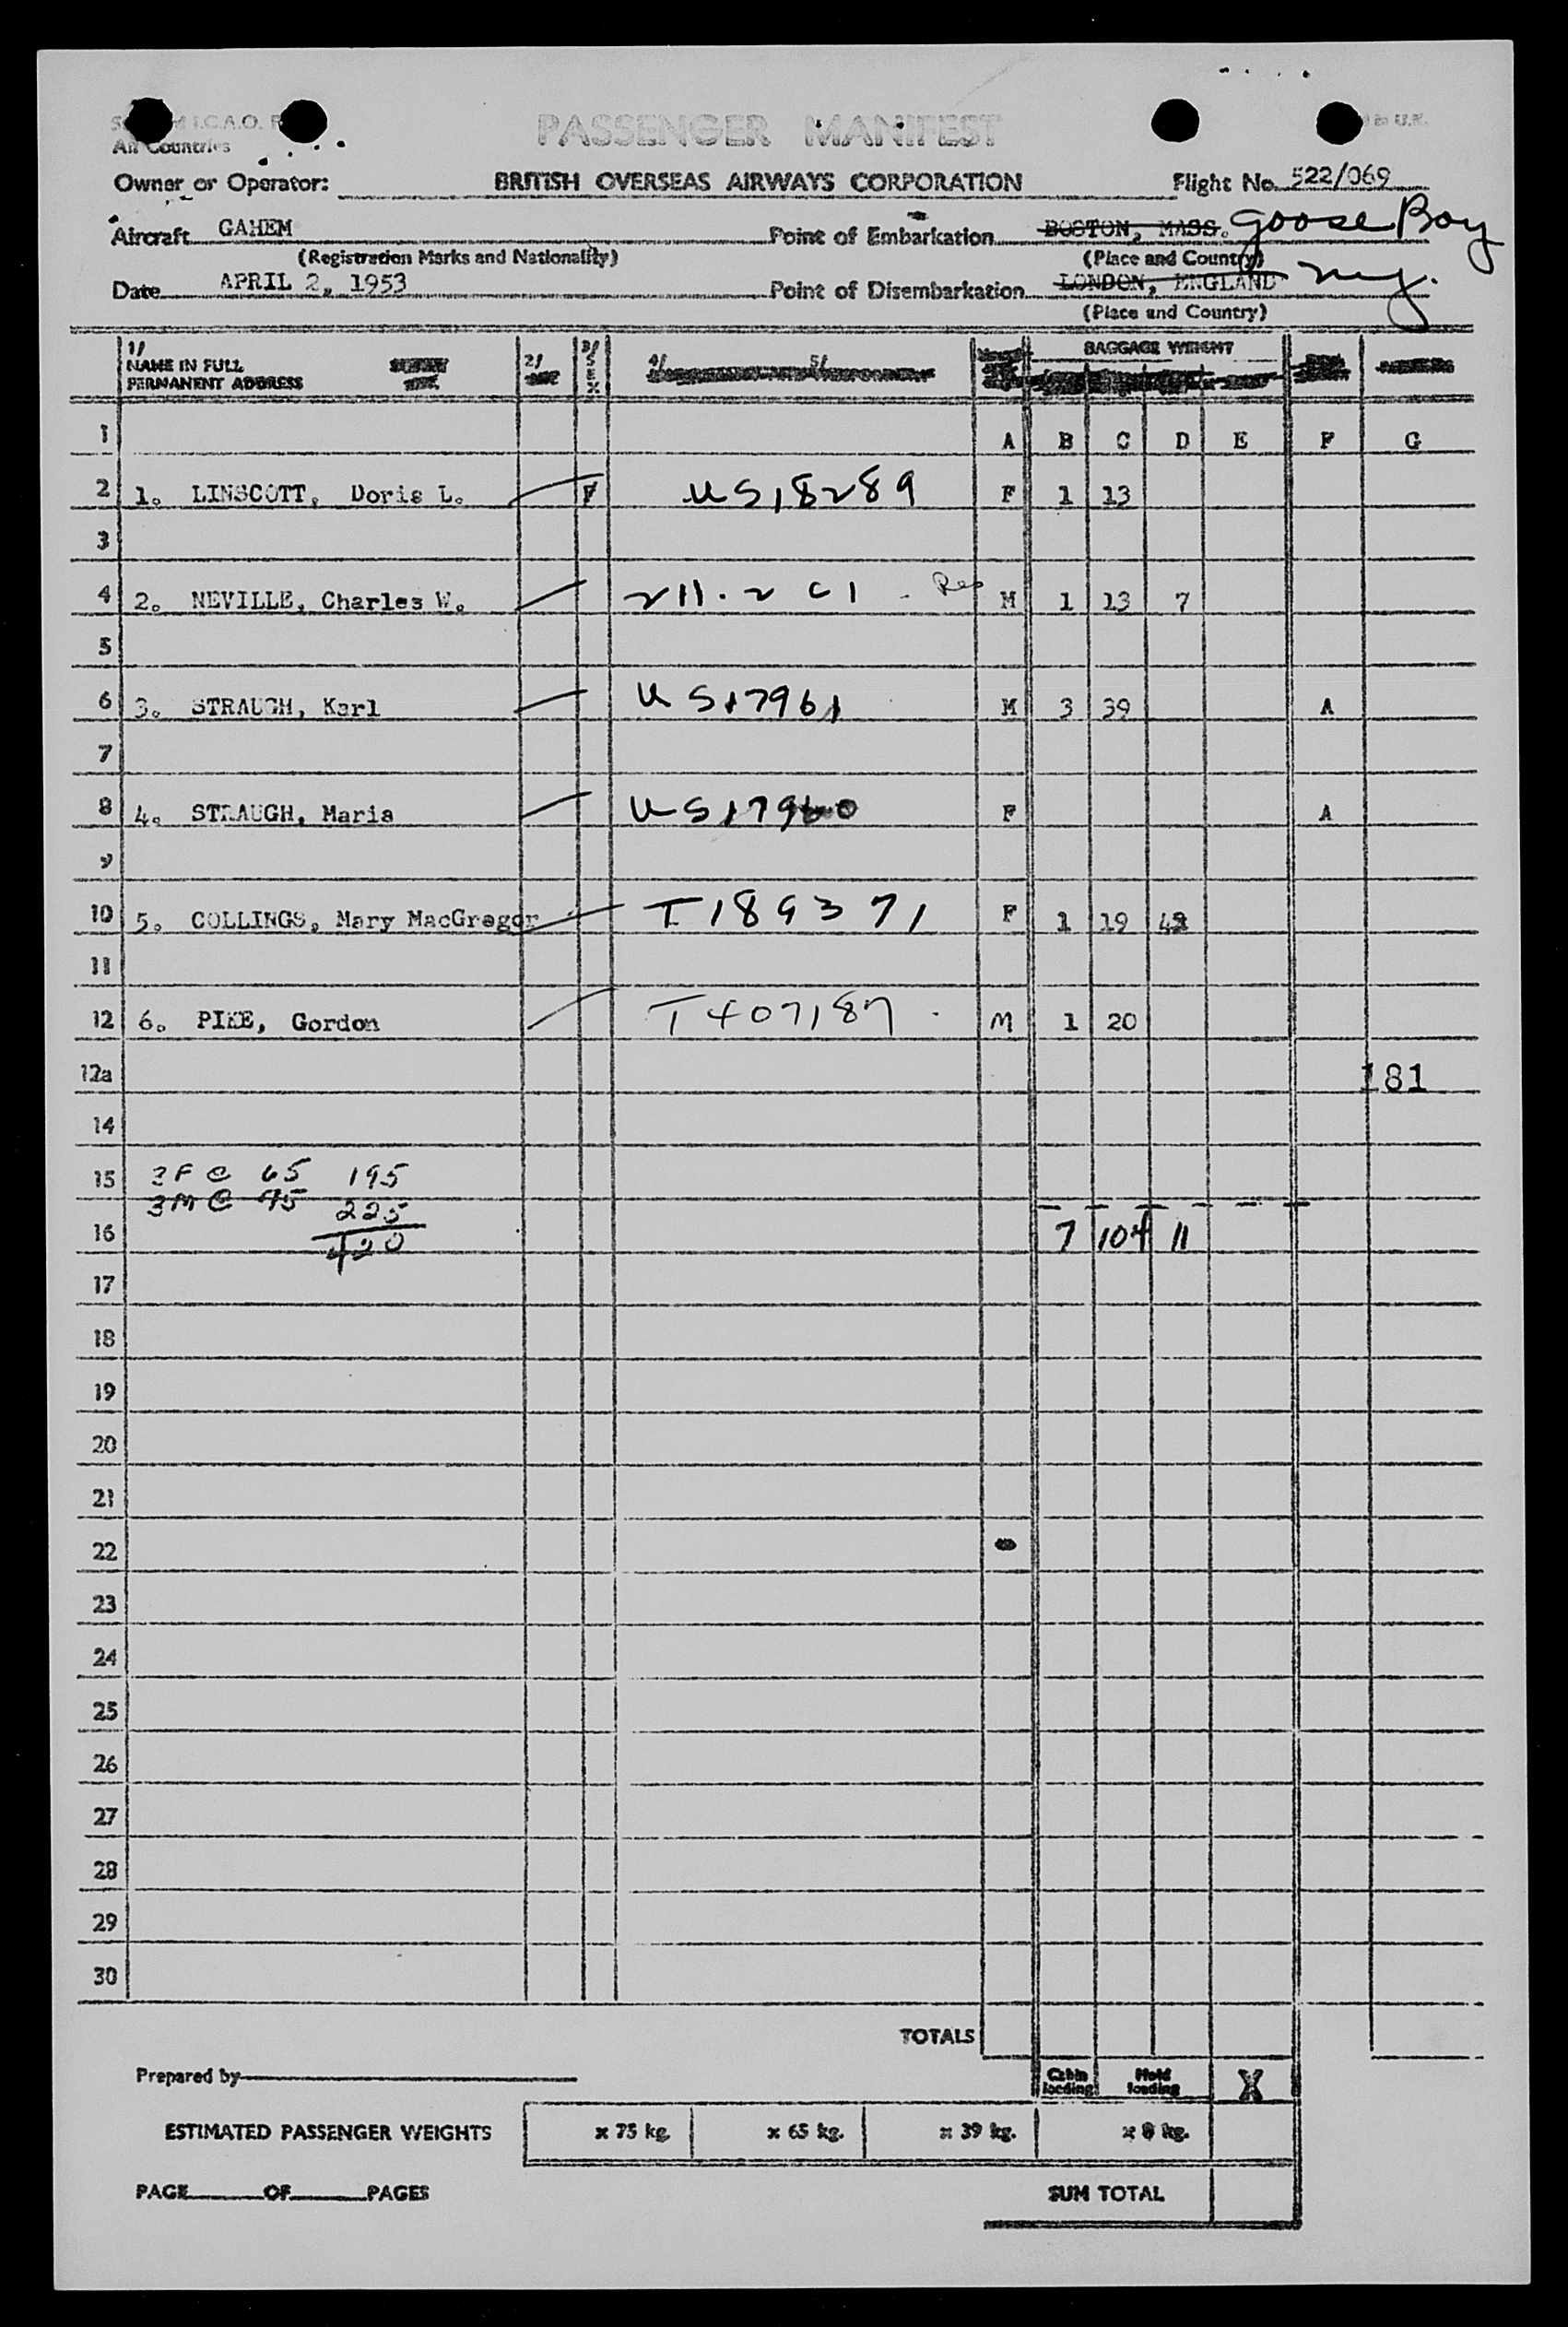 I.C.A.O.
All Countries
PASSENGER MANIFEST
in U.K.
Owner or Operator: BRITISH OVERSEAS AIRWAYS CORPORATION Flight No. 522/069
Aircraft GAHEM Point of Embarkation BOSTON, MASS. Goose Bay
(Registration Marks and Nationality) (Place and Country)
Date APRIL 2, 1953 Point of Disembarkation LONDON, ENGLAND ny.
(Place and Country)
1/ NAME IN FULL PERMANENT ADDRESS 2/ 3/ SEX 4/ 5/ BAGGAGE WEIGHT
1 A B C D E F G
2 1. LINSCOTT, Doris L. F US18289 F 1 13
3
4 2. NEVILLE, Charles W. 211.2 C1 - M 1 13 7
5
6 3. STRAUGH, Karl US17961 M 3 39 A
7
8 4. STRAUGH, Maria US17960 F A
9
10 5. COLLINGS, Mary MacGregor T189371 F 1 19
11
12 6. PIKE, Gordon T407187 . M 1 20
12a 181
14
15 3F @ 65 195
3M @ 75 225
16 420 7 104 11
17
18
19
20
21
22
23
24
25
26
27
28
29
30
TOTALS
Prepared by
Cabin loading Hold loading X
ESTIMATED PASSENGER WEIGHTS x 75 kg. x 65 kg. x 39 kg. x 8 kg.
PAGE OF PAGES SUM TOTAL